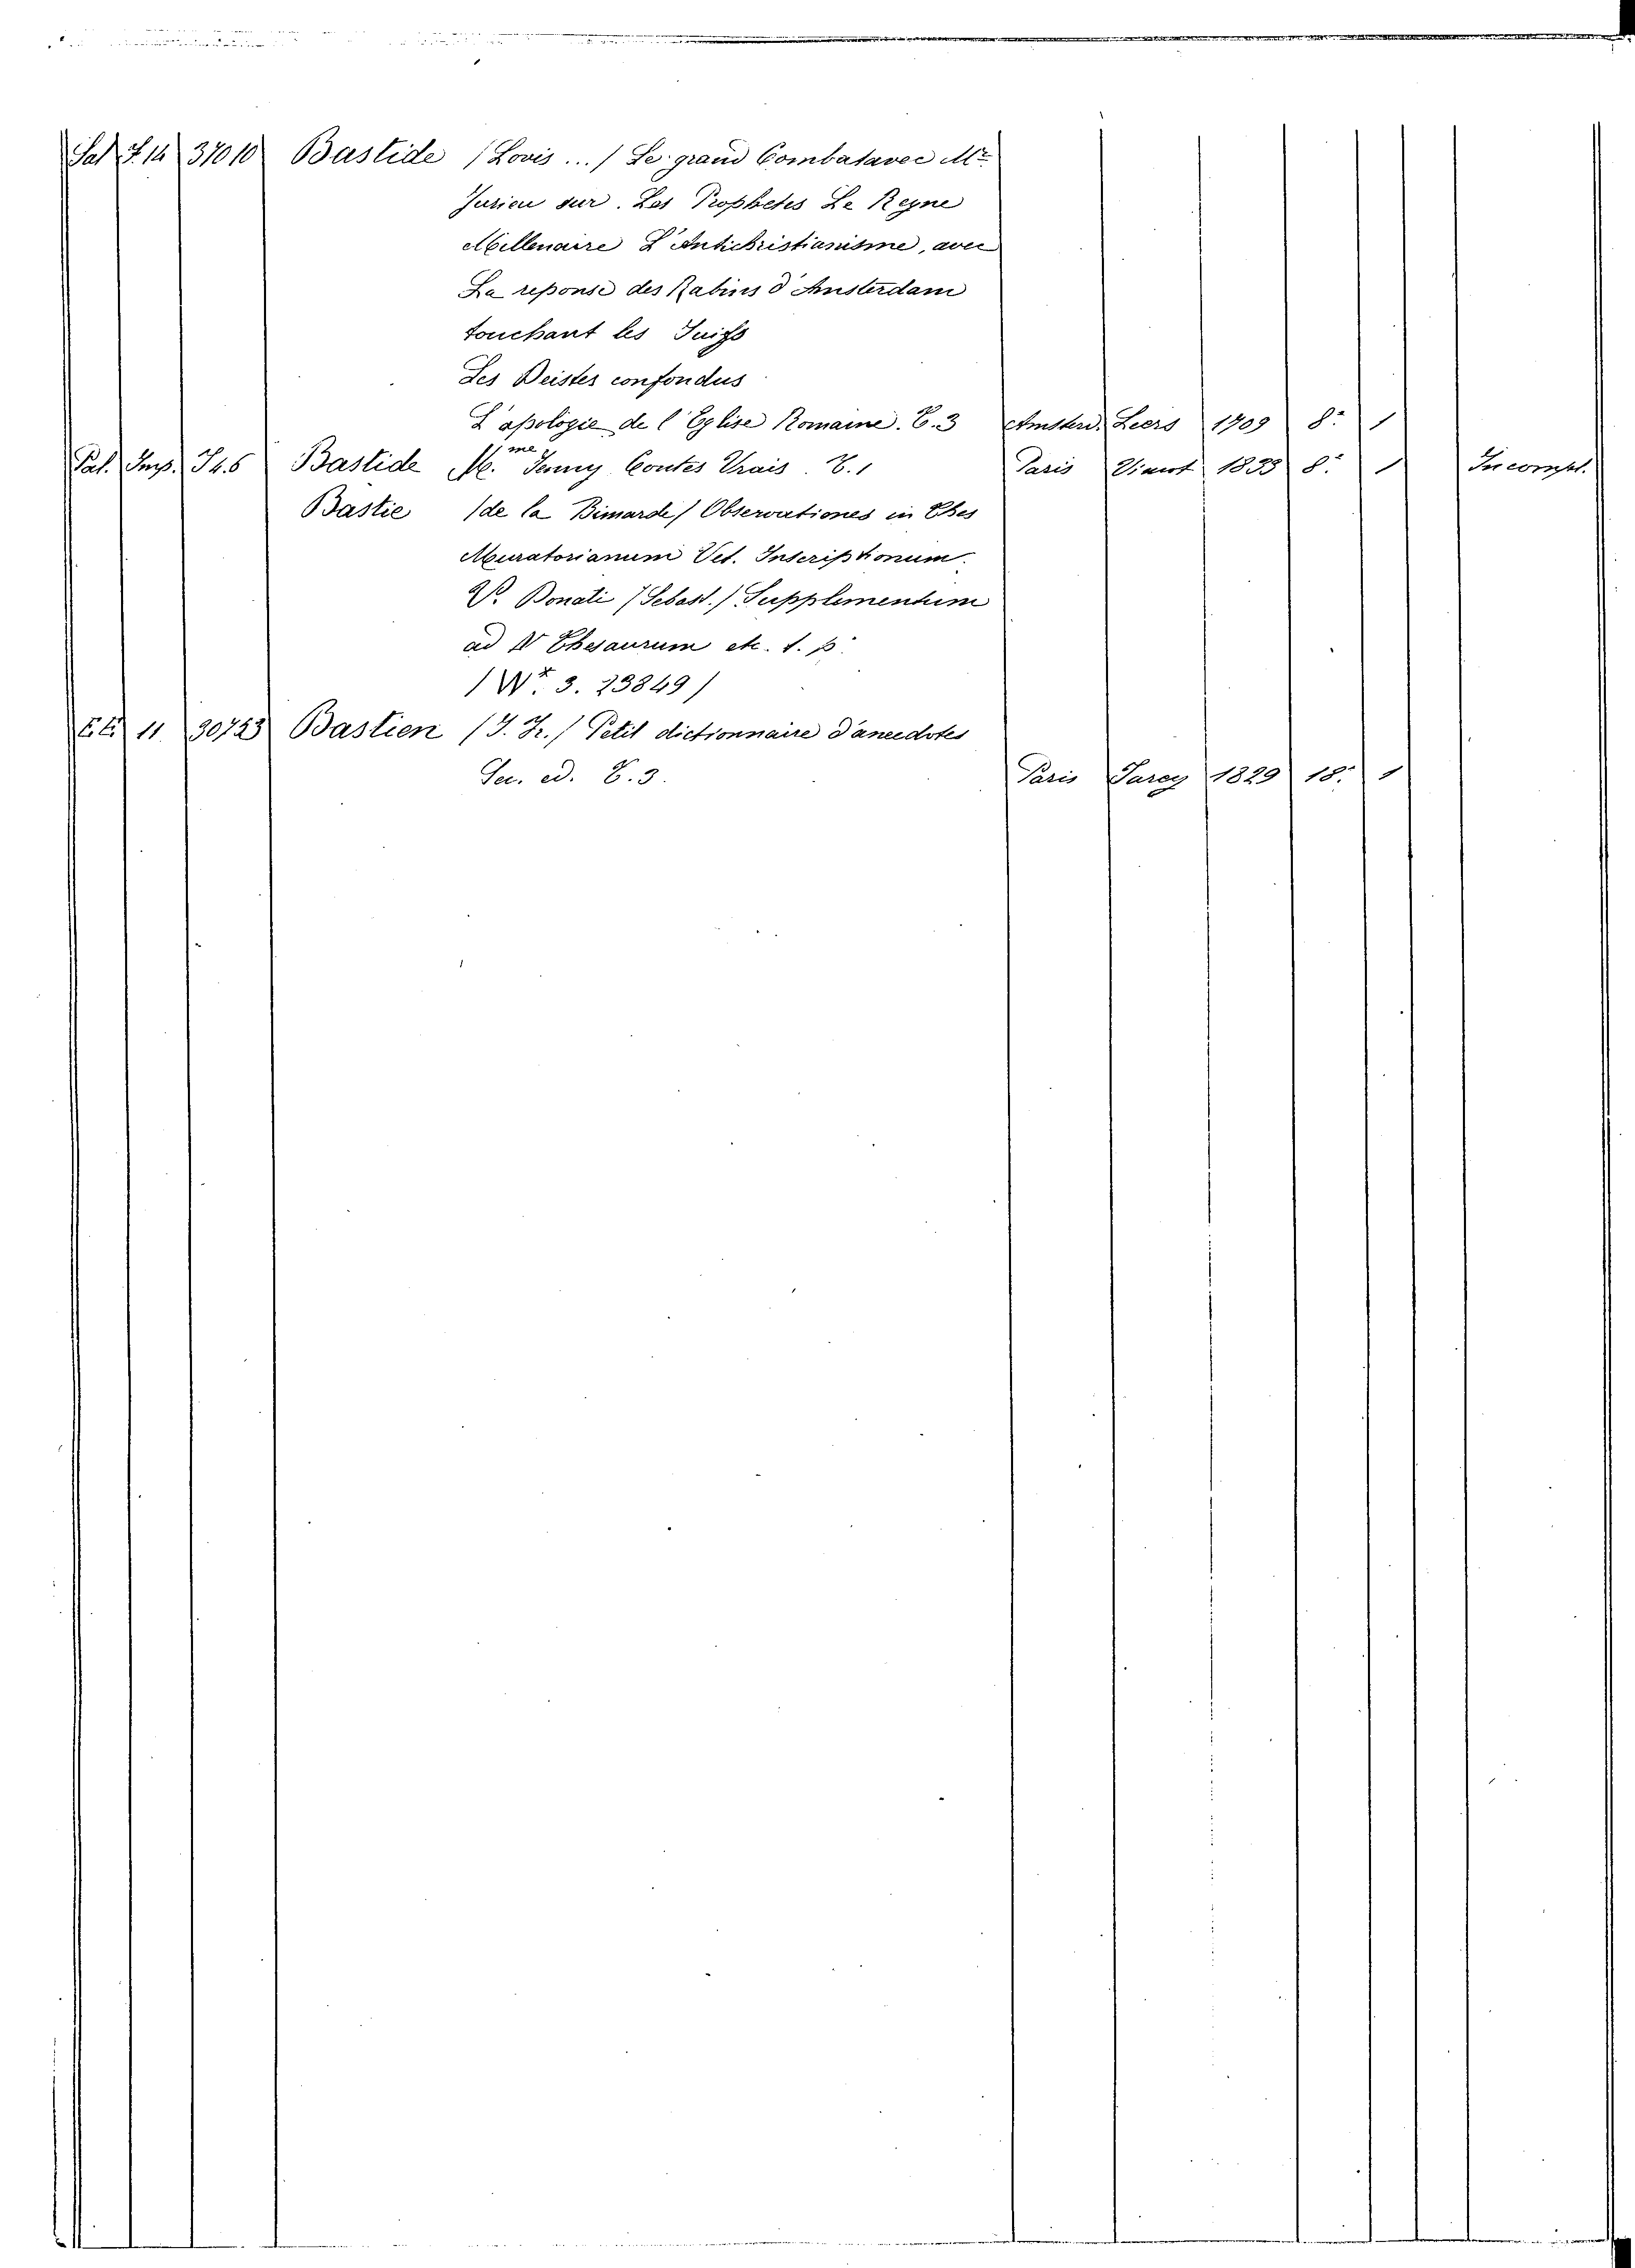 Sal F. 14 37010 Bastide /Lovis .../ Le grand Combat avec Mr
Jurieu sur. Les Prophetes Le Regne
Millenaire L'Antichristianisme, avec
La reponse des Rabins d'Amsterdam
touchant les Juifs
Les Deistes confondus
L'apologie de l'Eglise Romaine. T. 3 Amsterd. Leers 1709 8º 1
Pal. Imp. Bastide Mme Jenny Contes Vrais. T. 1 Paris 1833 8º 1 Incompl.
Bastie /de la Bimarde/ Observationes in Thes
Muratorianum Vet. Inscriptionum.
V. Donati /Sebast./ Supplementum
ad N Thesaurum etc. t. p.
3. 23849/
11 30753 Bastien /J. Fr./ Petit dictionnaire d'anecdotes
Sec. ed. T. 3. Paris 1829 18º 1